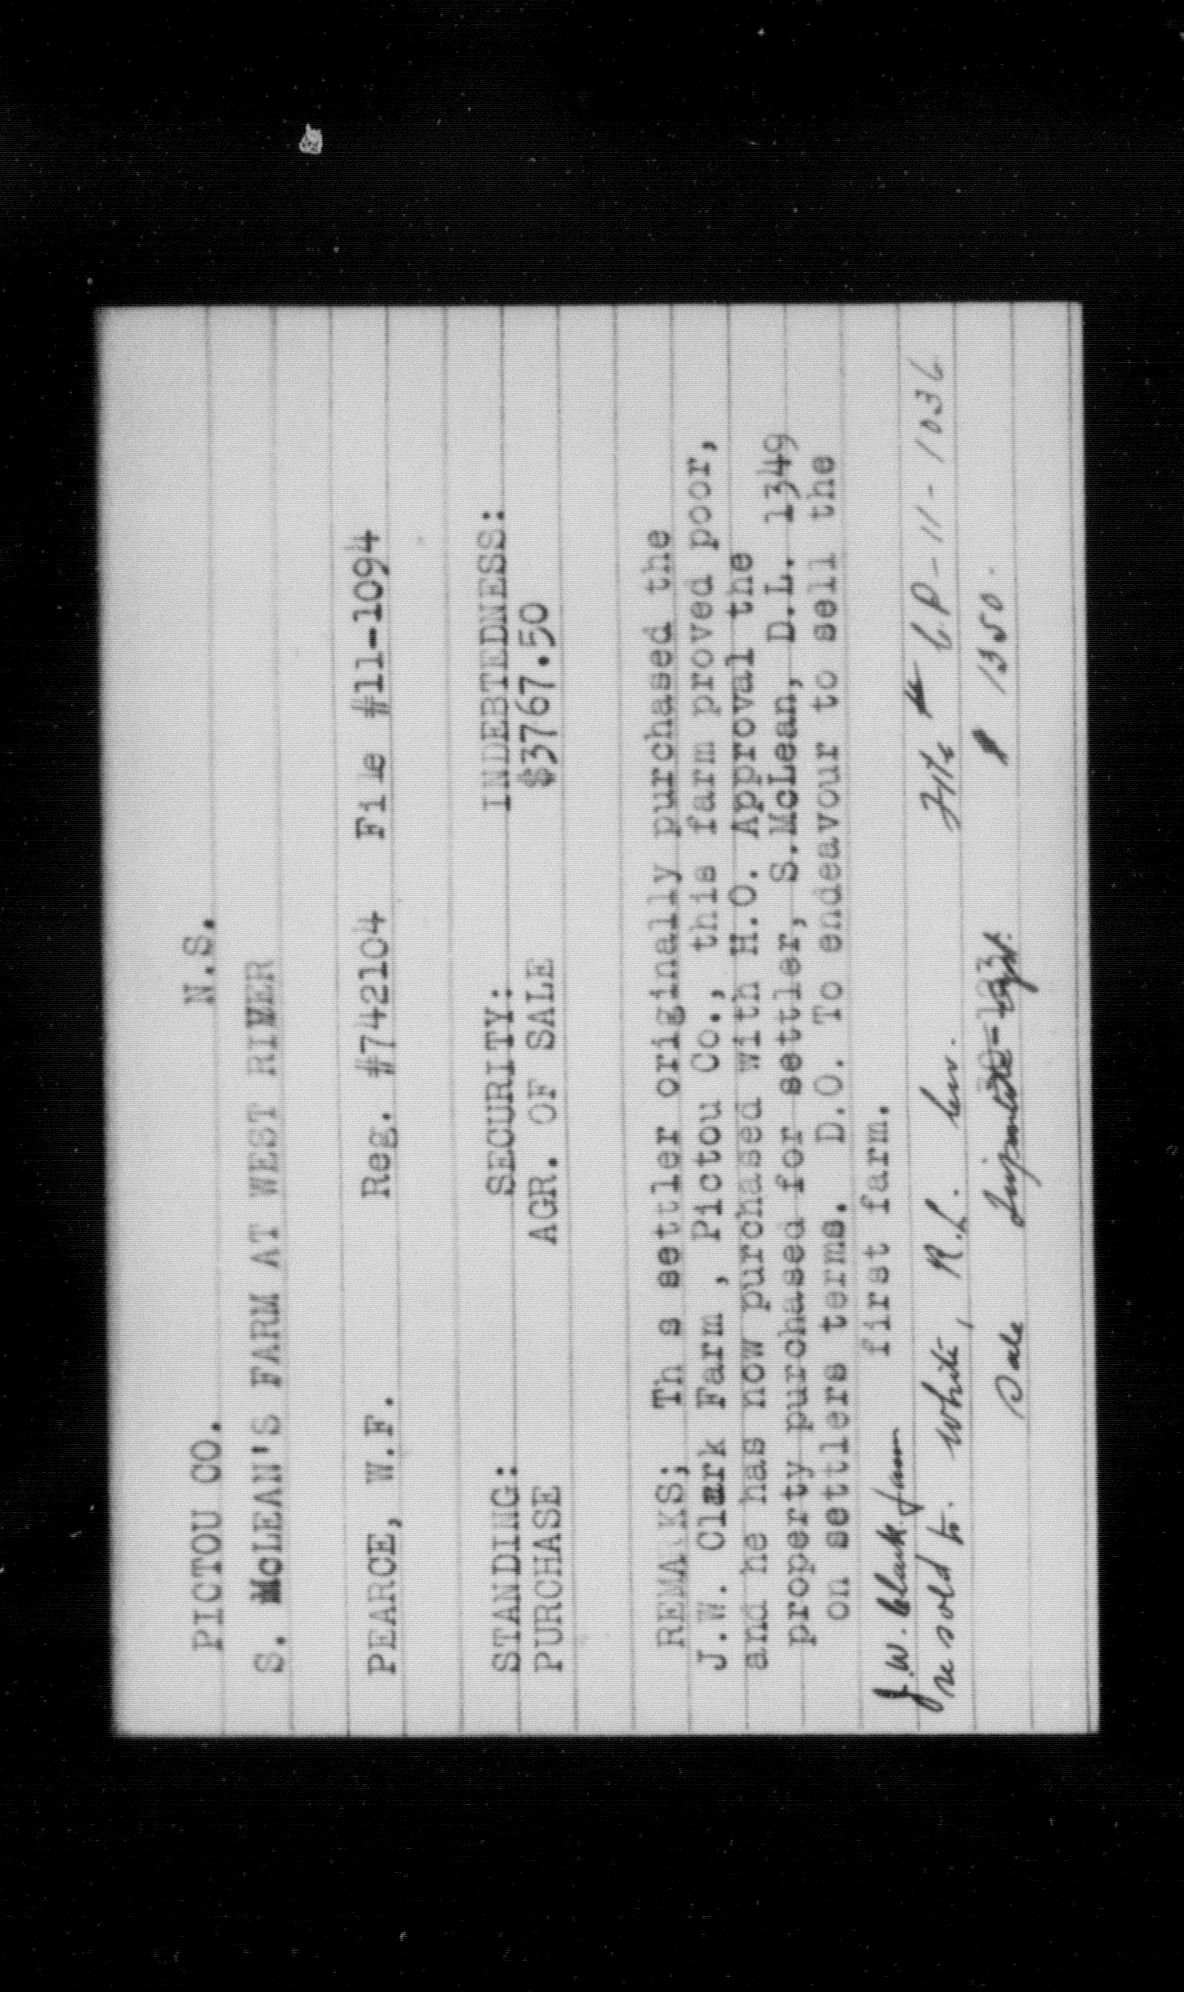 PICTOU CO. N.S.
S. McLEAN'S FARM AT WEST RIVER
PEARCE, W.F. Reg. #742104 File #11-1094
STANDING: SECURITY: INDEBTEDNESS:
PURCHASE AGR. OF SALE $3767.50
REMA KS; Th s settler originally purchased the
J.W. Clark Farm , Pictou Co., this farm proved poor,
and he has now purchased with H.O. Approval the
property purchased for settler, S.McLean, D.L. 1349
on settlers terms. D.O. To endeavour to sell the
first farm.
J.W. Clark farm
resold to. White, R.L. File # C.P-11-1036
Sale 1350.